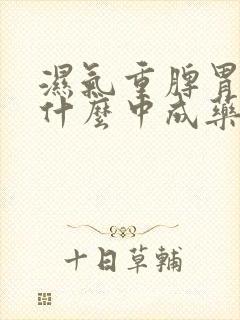 濕氣重脾胃
什麼中成藥
十日草輔